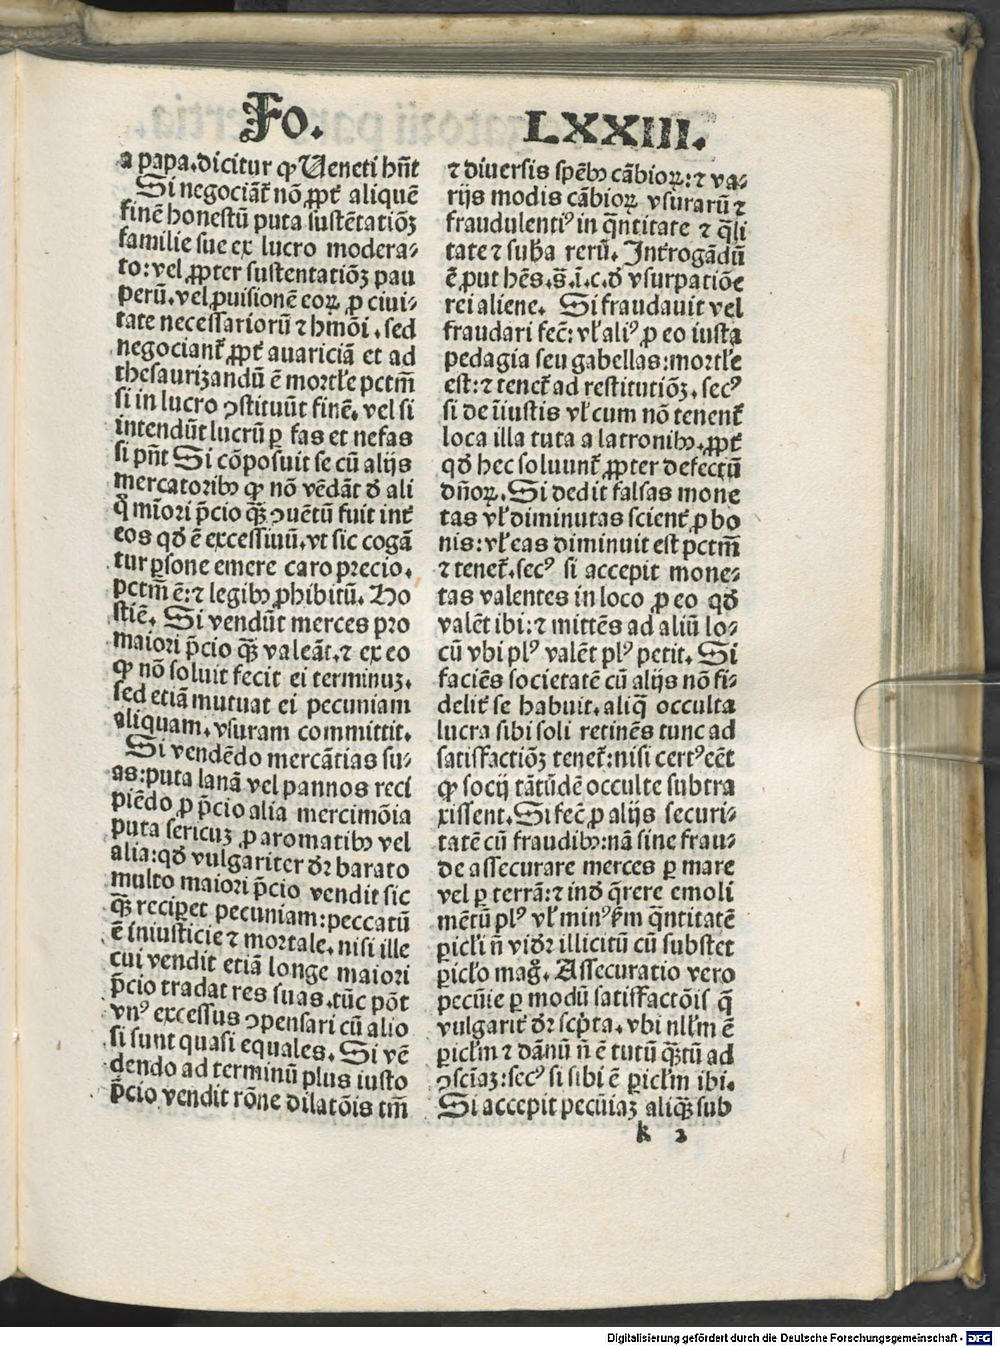 Fo. LXXIII.
a papa. dicitur ꝙ Ueneti hn̄t
Si negociãt̃ nõ ꝓpt̃ aliquẽ
finẽ honestũ puta sustẽtatiõꝫ
familie sue ex lucro modera⸗
to: vel ꝓpter sustentatiõꝫ pau
perũ. vel ꝓuisionẽ eoꝝ ꝓ ciui⸗
tate necessariorũ ⁊ hmõi. sed
negociant̃ ꝓpt̃ auariciã et ad
thesaurizandũ ẽ mortɫe pctm̃
si in lucro ꝯstituũt finẽ. vel si
intendũt lucrũ ꝑ fas et nefas
si pñt Si cõposuit se cũ alijs
mercatoribꝰ ꝙ nõ vẽdãt đ ali
q̊ mĩori p̃cio qꝫ̃ ꝯuẽtũ fuit int̃
eos qđ ẽ excessiuũ. vt sic cogã
tur ꝑsone emere caro precio.
pctm̃ ẽ: ⁊ legibꝰ ꝓhibitũ. Ho
stiẽ. Si vendũt merces pro
maiori p̃cio qꝫ̃ valeãt. ⁊ ex eo
ꝙ nõ soluit fecit ei terminuꝫ.
sed etiã mutuat ei pecuniam
aliquam. vsuram committit.
Si vendẽdo mercãtias su⸗
as: puta lanã vel pannos reci
piẽdo ꝓ p̃cio alia mercimõia
puta sericuꝫ ꝓ aromatibꝰ vel
alia: qđ vulgariter đr barato
multo maiori p̃cio vendit sic
qꝫ̃ reciꝑet pecuniam: peccatũ
ẽ iniusticie ⁊ mortale. nisi ille
cui vendit etiã longe maiori
p̃cio tradat res suas. tũc põt
vnꝰ excessus ꝯpensari cũ alio
si sunt quasi equales. Si vẽ
dendo ad terminũ plus iusto
p̃cio vendit rõne dilatõis tm̃
⁊ diuersis spẽbꝰ cãbioꝝ: ⁊ va⸗
rijs modis cãbioꝝ vsurarũ ⁊
fraudulentiꝰ in q̃ntitate ⁊ q̃li
tate ⁊ sub̃a rerũ. Int̃rogãdũ
ẽ ꝓut hẽs. s̃. ĩ. c. đ vsurpatiõe
rei aliene. Si fraudauit vel
fraudari fec̃: vɫ aliꝰ ꝓ eo iusta
pedagia seu gabellas: mortɫe
est: ⁊ tenet̃ ad restitutiõꝫ. secꝰ
si de iĩustis vɫ cum nõ tenent̃
loca illa tuta a latronibꝰ. ꝓpt̃
qđ hec soluunt̃ ꝓpter defectũ
dñoꝝ. Si dedit falsas mone
tas vɫ diminutas scient̃ ꝓ bo
nis: vɫ eas diminuit est pctm̃
⁊ tenet̃. secꝰ si accepit mone⸗
tas valentes in loco ꝓ eo qđ
valẽt ibi: ⁊ mittẽs ad aliũ lo⸗
cũ vbi plꝰ valẽt plꝰ petit. Si
faciẽs societatẽ cũ alijs nõ fi⸗
delit̃ se habuit. aliq̃ occulta
lucra sibi soli retinẽs tunc ad
satisfactiõꝫ tenet̃: nisi certꝰ eẽt
ꝙ socij tãtũdẽ occulte subtra
xissent. Si fec̃ ꝓ alijs securi⸗
tatẽ cũ fraudibꝰ: nã sine frau⸗
de assecurare merces ꝑ mare
vel ꝑ terrã: ⁊ inđ q̃rere emoli
mẽtũ plꝰ vɫ minꝰ ẜm q̃ntitatẽ
ꝑicɫi ñ viđr illicitũ cũ substet
ꝑicɫo mag̊. Assecuratio vero
pecũie ꝑ modũ satisfactõis q̃
vulgarit̃ đr scp̃ta. vbi nɫɫm ẽ
ꝑicɫm ⁊ dãnũ ñ ẽ tutũ qꝫ̃tũ ad
ꝯsciãꝫ: secꝰ si sibi ẽ ꝑicɫm ibi.
Si accepit pecũiaꝫ aliqꝫ̃ sub
k 2
Digitalisierung gefördert durch die Deutsche Forschungsgemeinschaft - DFG